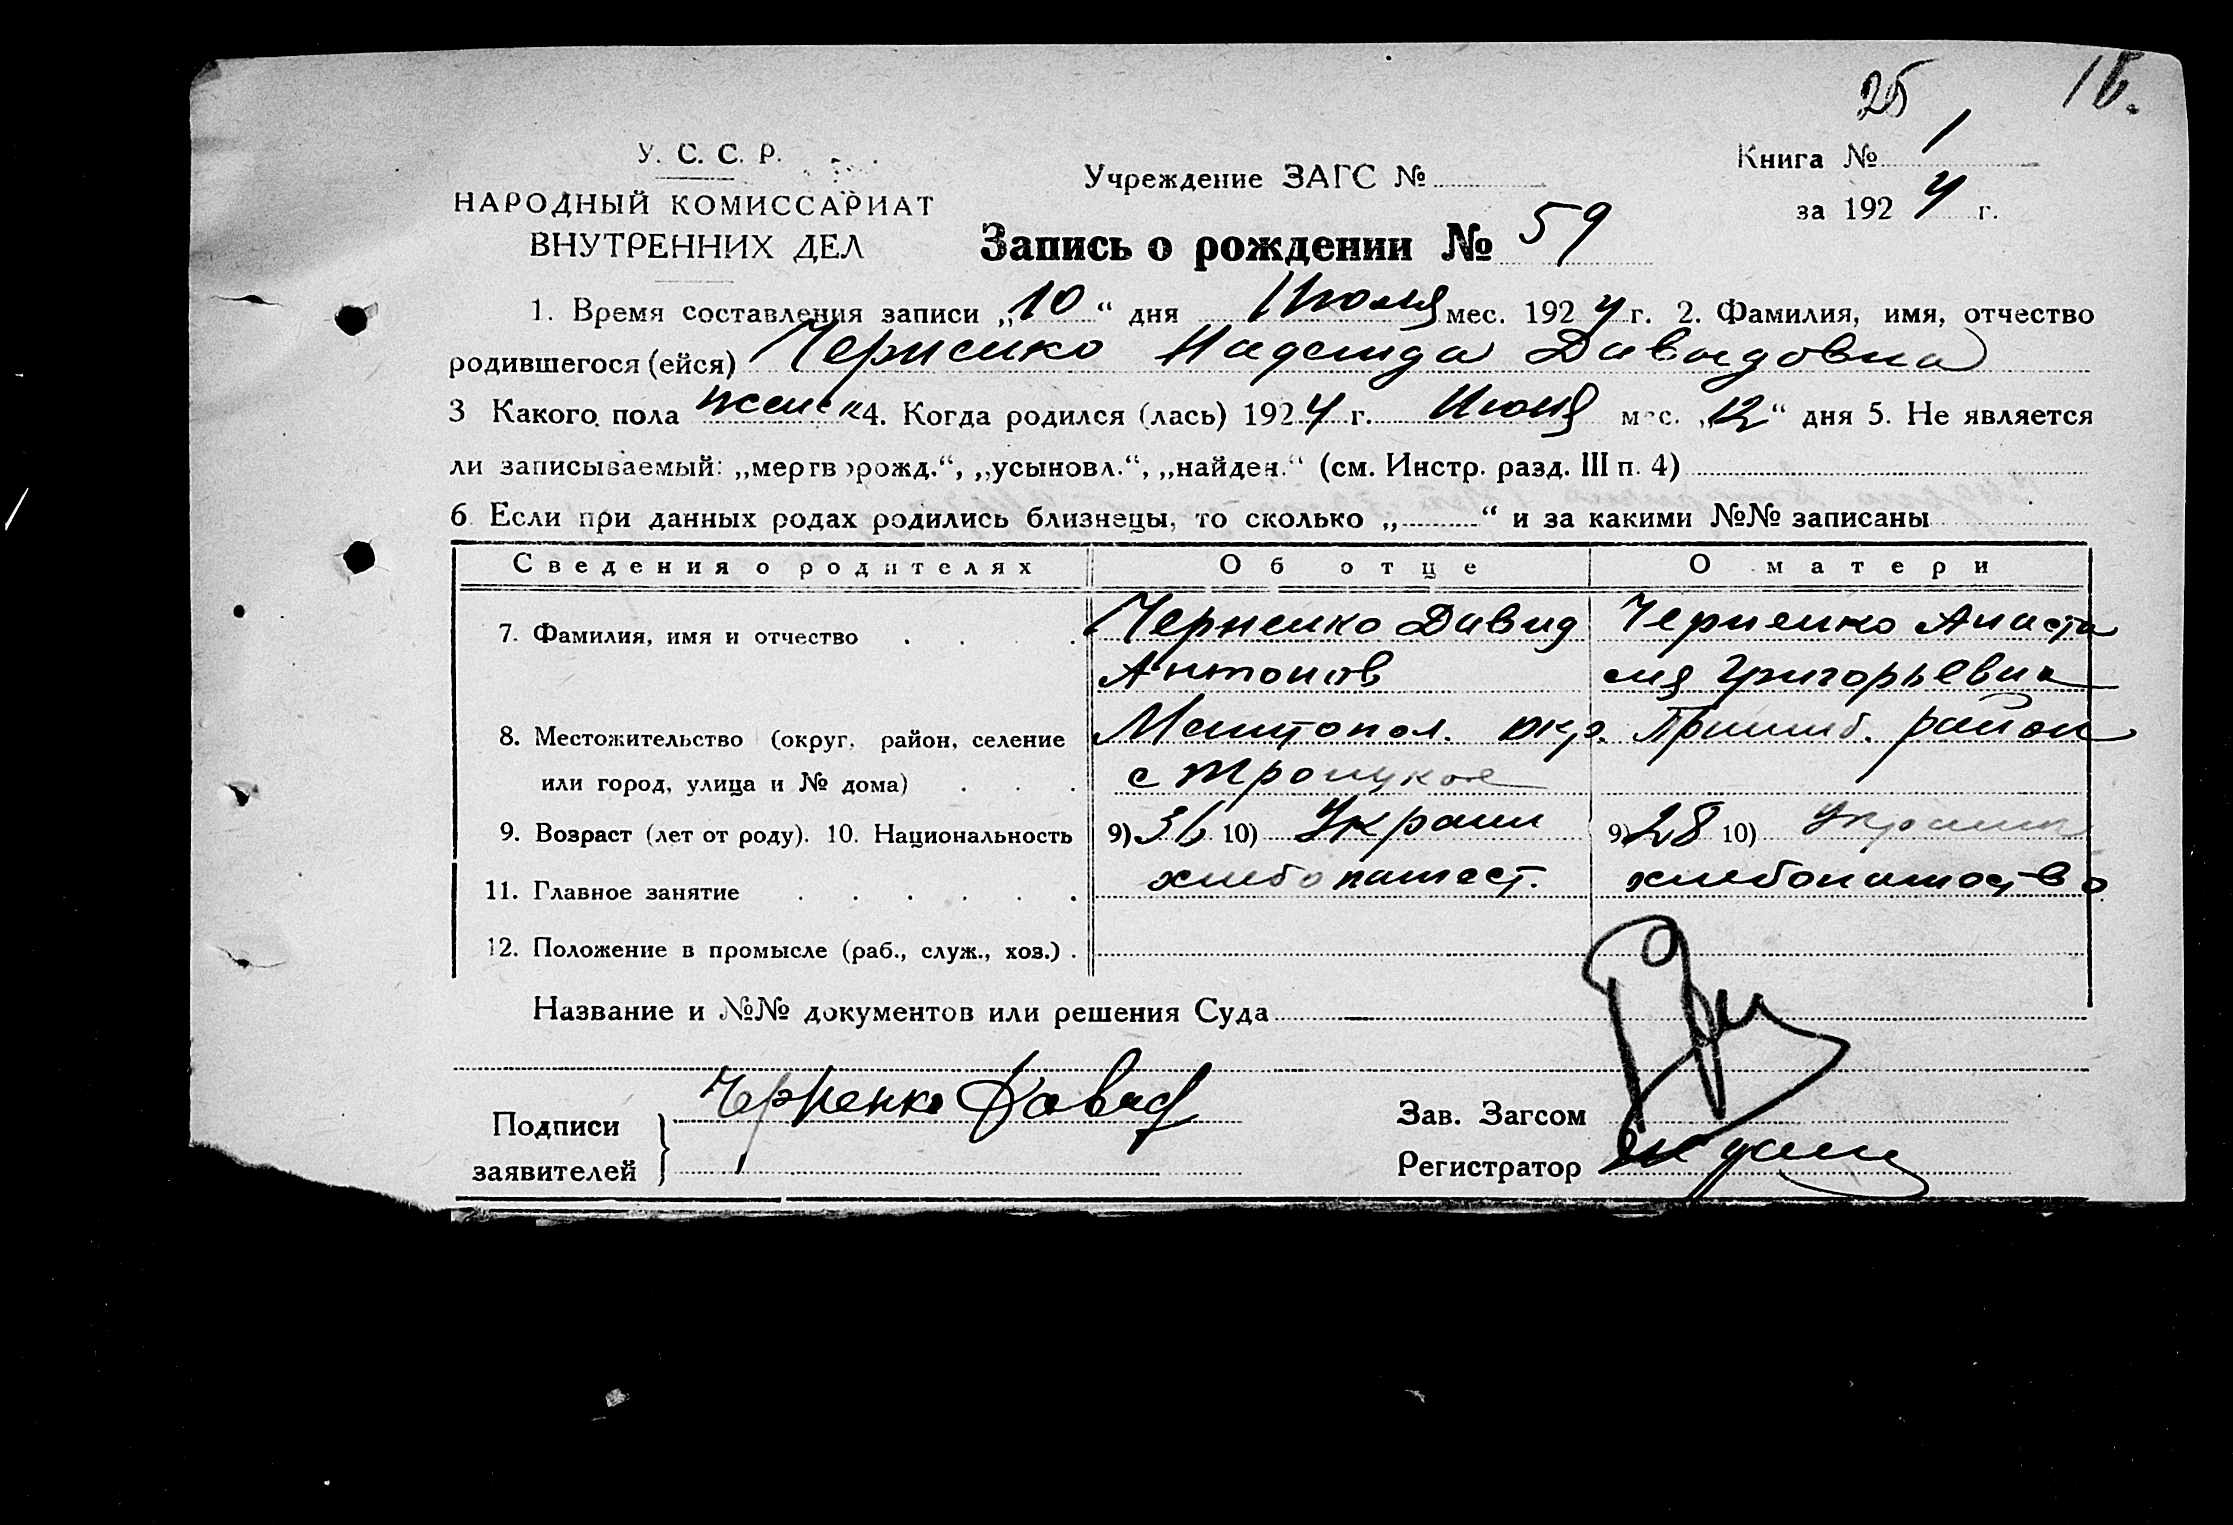 25
16.
У. С. С. Р.
НАРОДНЫЙ КОМИССАРИАТ
ВНУТРЕННИХ ДЕЛ
Учреждение ЗАГС №
Книга № 1
за 192 4 г.
Запись о рождении № 59
1. Время составления записи „10“ дня Июля мес. 192 4 г. 2. Фамилия, имя, отчество
родившегося (ейся) Черненко Надежда Давыдовна
3 Какого пола женск 4. Когда родился (лась) 192 4 г. Июня мес. „12“ дня 5. Не является
ли записываемый: „мертворожд.“, „усыновл.“, „найден.“ (см. Инстр. разд. III п. 4)
6 Если при данных родах родились близнецы, то сколько „ “ и за какими №№ записаны
Сведения о родителях Об отце О матери
7. Фамилия, имя и отчество Черненко Давид Черненко Анаста
Антонов сия Григорьевна
8. Местожительство (округ, район, селение Мелитопол. окр. Пришиб. район
или город, улица и № дома) с Троицкое
9. Возраст (лет от роду). 10. Национальность 9) 36 10) Украин 9) 28 10) Украин
11. Главное занятие хлебопашест. хлебопашество
12. Положение в промысле (раб., служ., хоз.)
Название и №№ документов или решения Суда
Подписи
заявителей
Черненко Давид
Зав. Загсом
Регистратор